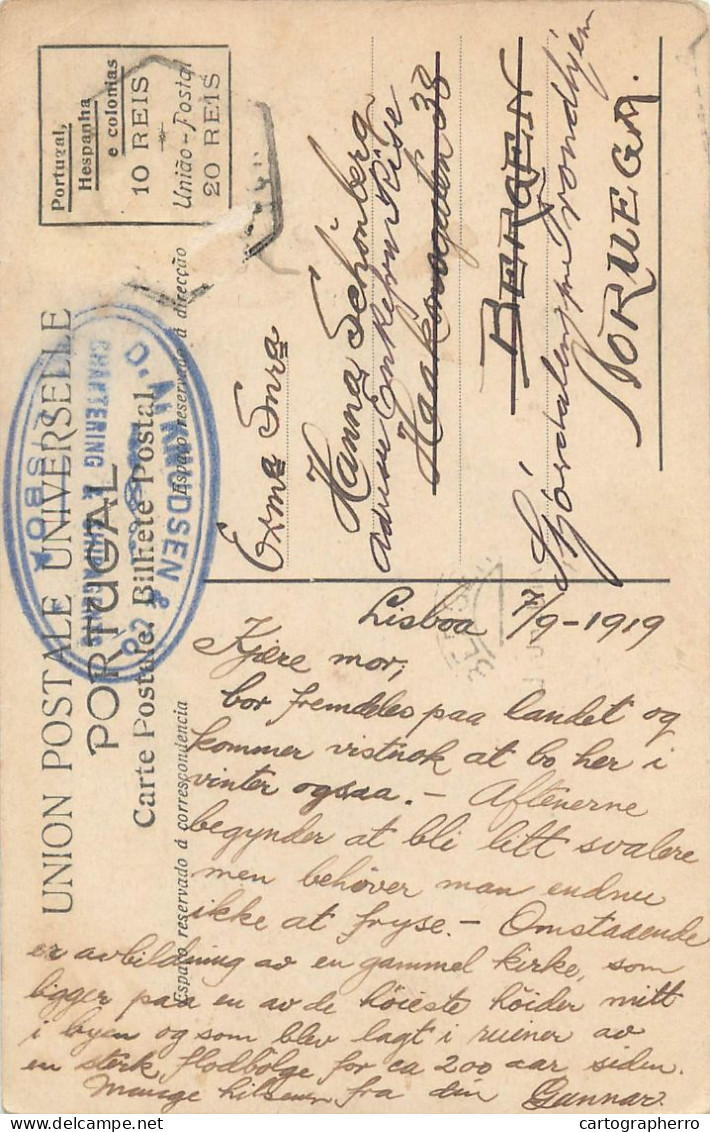 UNION POSTALE UNIVERSELLE
PORTUGAL
Carte Postale. Bilhete Postal
Espaço reservado á correspondencia
Espaço reservado á direcção
Portugal,
Hespanha
e colonias
10 REIS
União-Postal
20 REIS
KNUDSEN & Co
CHARTERING
LISBOA
Exma Snra
Hanna Schönberg
Adresse Enkefru Rise
Haakonsgaten 38
BERGEN
Stjördalen pr Trondhjem
NORUEGA.
Lisboa 7/9-1919
Kjære mor,
bor fremdeles paa landet og
kommer vistnok at bo her i
vinter ogsaa. - Aftenerne
begynder at bli litt svalere
men behöver man endnu
ikke at fryse. - Omstaaende
er avbildning av en gammel kirke, som
ligger paa en av de höieste höider midt
i byen og som blev lagt i ruener av
en sterk flodbölge for ca 200 aar siden.
Mange hilsener fra din Gunnar.
cartographerro
© www.delcampe.net